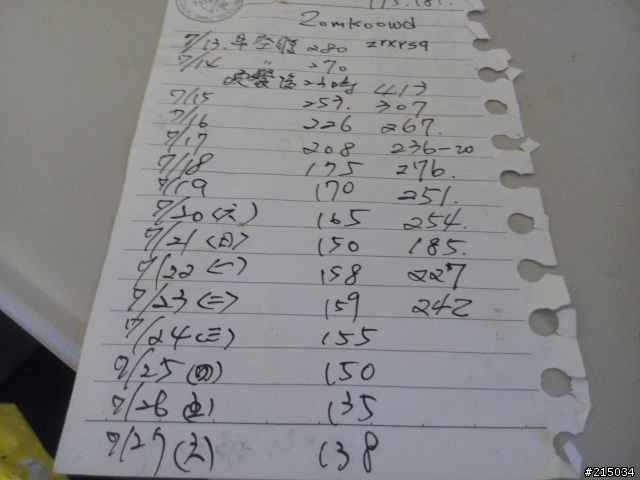 173.181.
Zomkoowd
7/13 早空腹 280 zrxrsq
7/14 〃 270
晚餐後 413
7/15 257. 307
7/16 226 267.
7/17 208 236-20
7/18 175 276.
7/19 170 251.
7/20 (六) 165 254.
7/21 (日) 150 185.
7/22 (一) 158 227
7/23 (二) 159 242
7/24 (三) 155
7/25 (四) 150
7/26 (五) 135
7/27 (六) 138
#215034